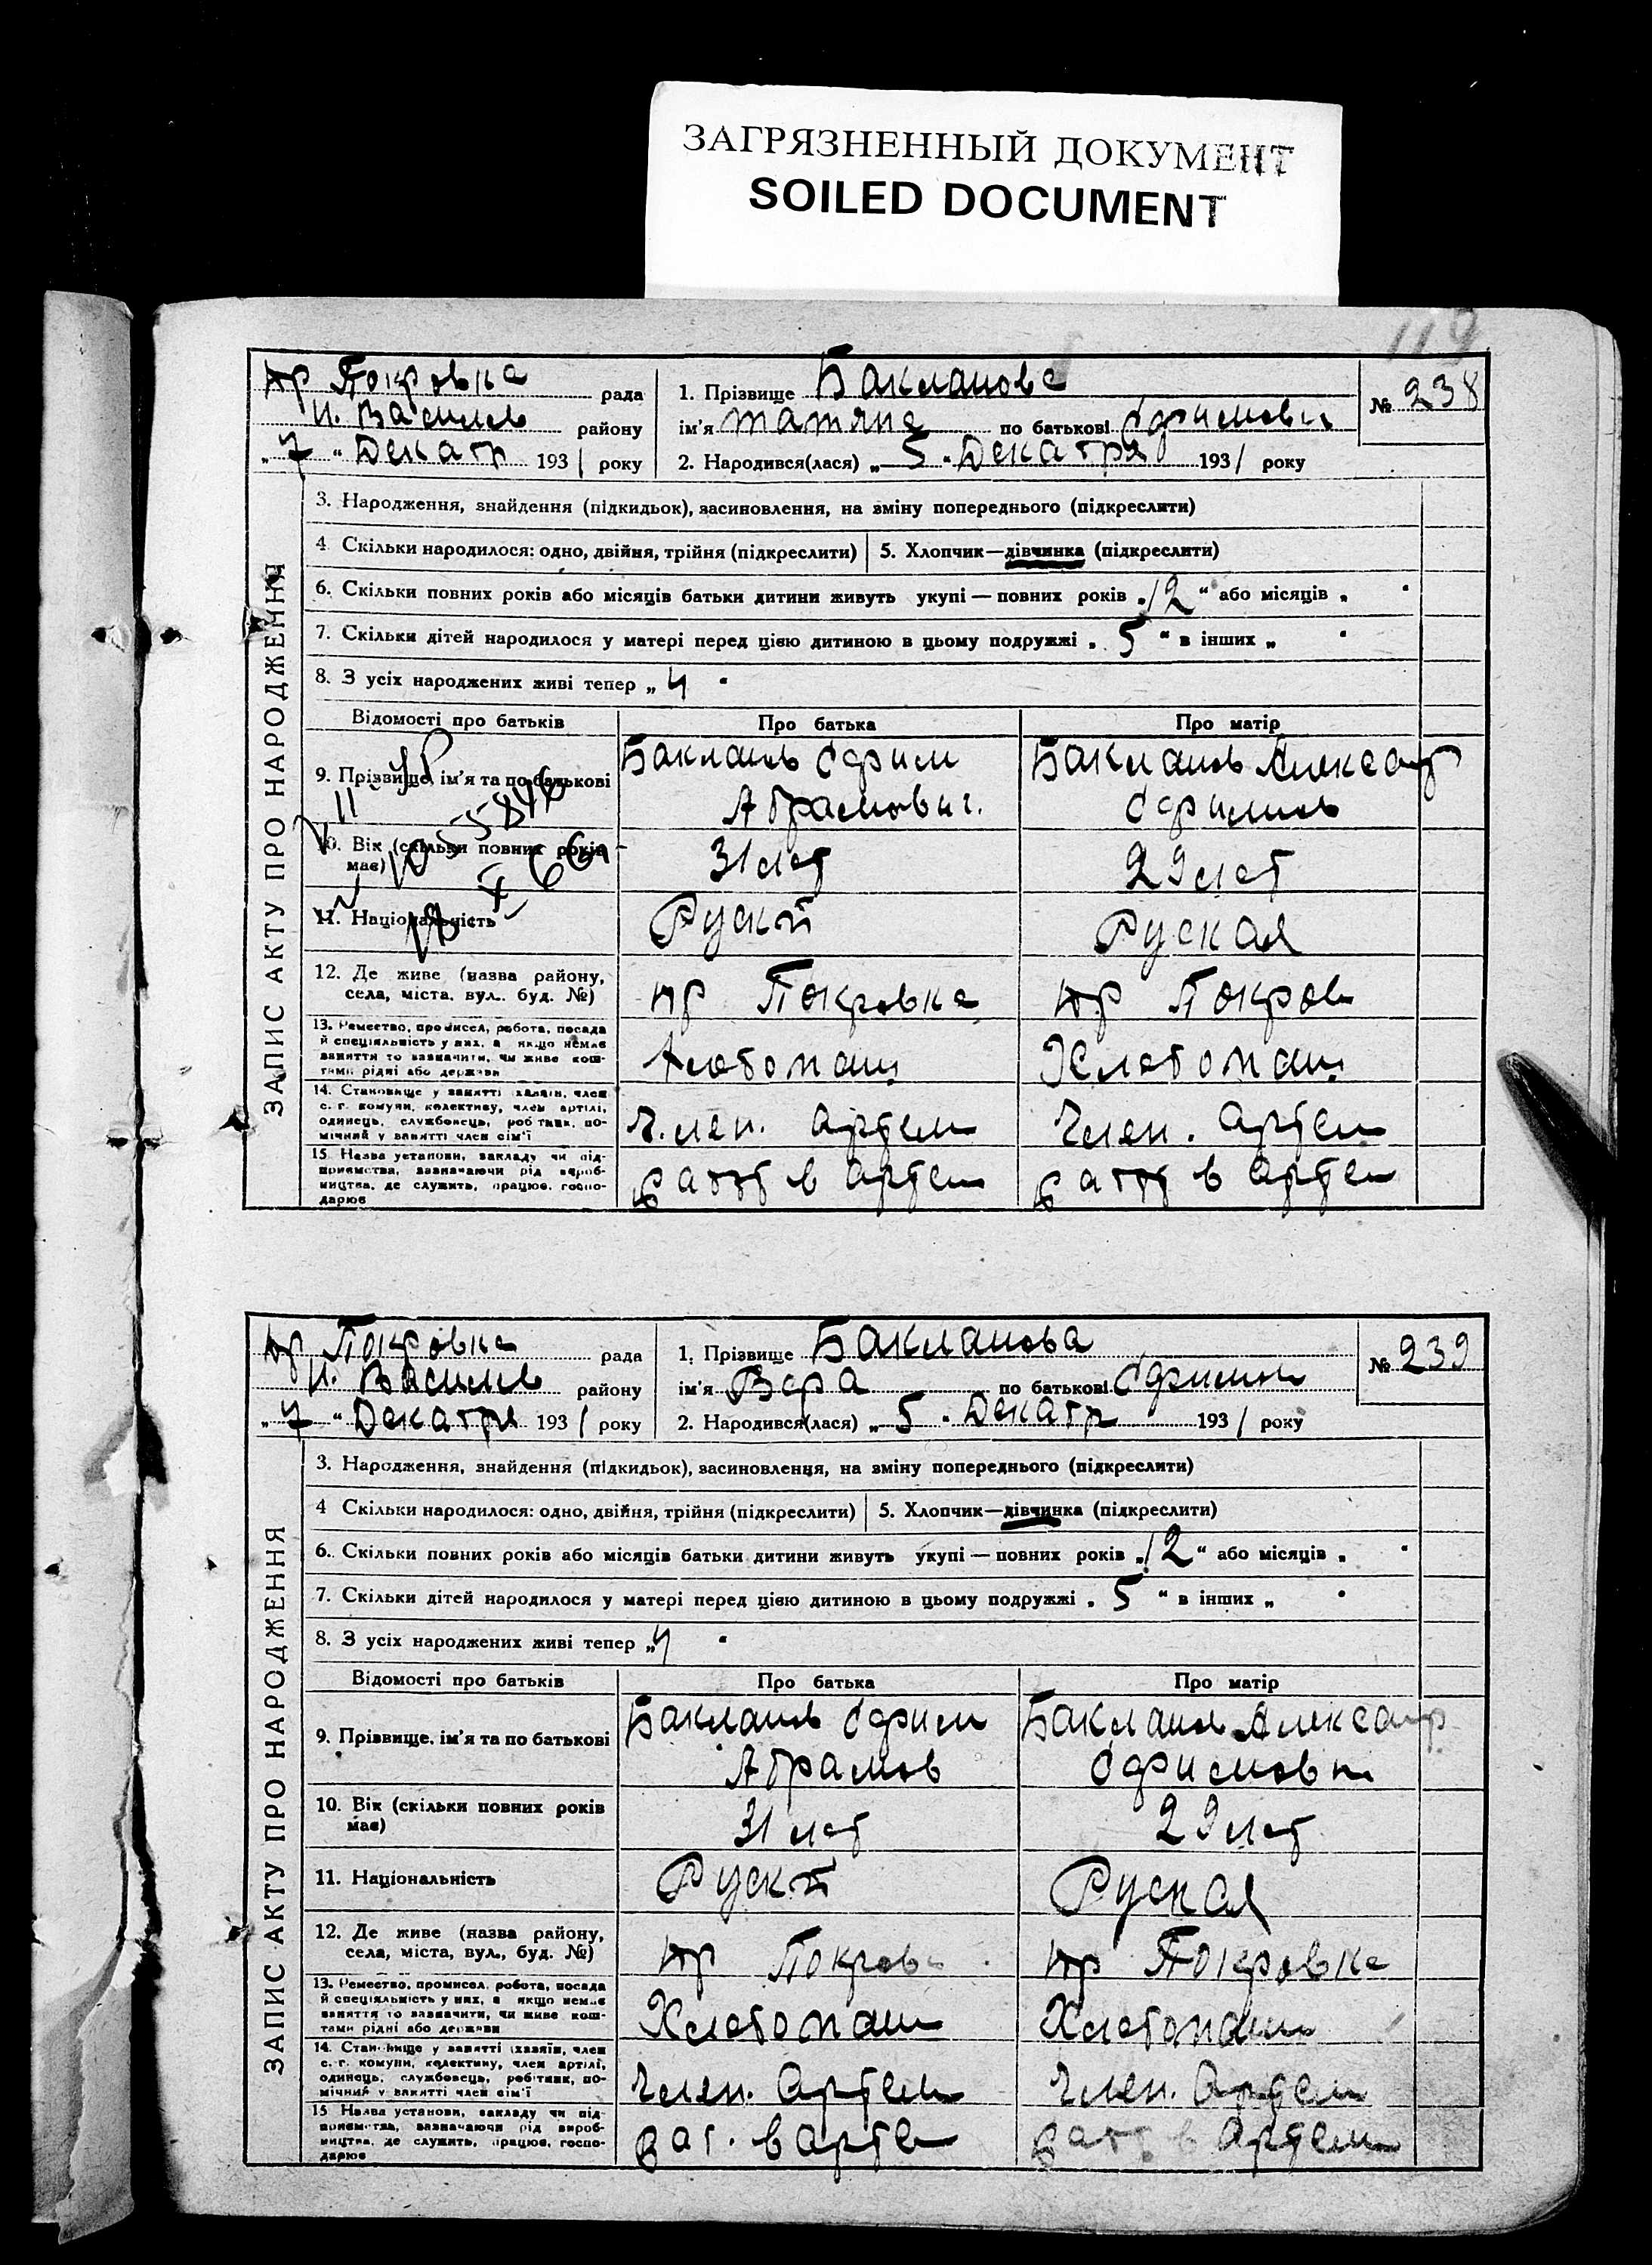 ЗАГРЯЗНЕННЫЙ ДОКУМЕНТ
SOILED DOCUMENT
119
ЗАПИС АКТУ ПРО НАРОДЖЕННЯ
Нр Покровка рада
Н. Василев району
„ 7 “ Декабр 1931 року
1. Прізвище Бакланова
ім'я Татяна по батькові Ефимовн
2. Народився(лася) „ 5 “ Декабря 1931 року
№ 238
3. Народження, знайдення (підкидьок), засиновлення, на зміну попереднього (підкреслити)
4 Скільки народилося: одно, двійня, трійня (підкреслити) 5. Хлопчик—дівчинка (підкреслити)
6. Скільки повних років або місяців батьки дитини живуть укупі — повних років „ 12 “ або місяців „ “
7. Скільки дітей народилося у матері перед цією дитиною в цьому подружжі „ 5 “ в інших „ “
8. З усіх народжених живі тепер „ 4 “
Відомості про батьків Про батька Про матір
9. Прізвище, ім'я та по батькові Бакланов Ефим Бакланов Александр
Абрамович. Ефимов
10. Вік (скільки повних років має) 31 лет 29 лет
11. Національність Руский Руская
12. Де живе (назва району, села, міста, вул., буд. №) Нр Покровка Нр Покров
13. Ремество, промисел, робота, посада й спеціяльність у них, а якщо немає заняття то зазначити, чи живе коштами рідні або держави Хлебопаш Хлебопаш
14. Становище у занятті (хазяїн, член с.-г. комуни, колективу, член артілі, одинець, службовець, робітник, помічний у занятті член сім'ї Член. Артели Член. Артели
15. Назва установи, закладу чи підприємства, зазначаючи рід виробництва, де служить, працює, господарює работ в Артели работ в Артели
ЗАПИС АКТУ ПРО НАРОДЖЕННЯ
Нр Покровка рада
Н. Василев району
„ 7 “ Декабря 1931 року
1. Прізвище Бакланова
ім'я Вера по батькові Ефимов
2. Народився(лася) „ 5 “ Декабр 1931 року
№ 239
3. Народження, знайдення (підкидьок), засиновлення, на зміну попереднього (підкреслити)
4 Скільки народилося: одно, двійня, трійня (підкреслити) 5. Хлопчик—дівчинка (підкреслити)
6. Скільки повних років або місяців батьки дитини живуть укупі — повних років „ 12 “ або місяців „ “
7. Скільки дітей народилося у матері перед цією дитиною в цьому подружжі „ 5 “ в інших „ “
8. З усіх народжених живі тепер „ 4 “
Відомості про батьків Про батька Про матір
9. Прізвище, ім'я та по батькові Бакланов Ефим Бакланов Александр
Абрамов Ефимовн
10. Вік (скільки повних років має) 31 лет 29 лет
11. Національність Руский Руская
12. Де живе (назва району, села, міста, вул., буд. №) Нр Покровк Нр Покровка
13. Ремество, промисел, робота, посада й спеціяльність у них, а якщо немає заняття то зазначити, чи живе коштами рідні або держави Хлебопаш Хлебопаш
14. Становище у занятті (хазяїн, член с.-г. комуни, колективу, член артілі, одинець, службовець, робітник, помічний у занятті член сім'ї Член. Артели Член. Артели
15 Назва установи, закладу чи підприємства, зазначаючи рід виробництва, де служить, працює, господарює раб. в Арте работ в Артели